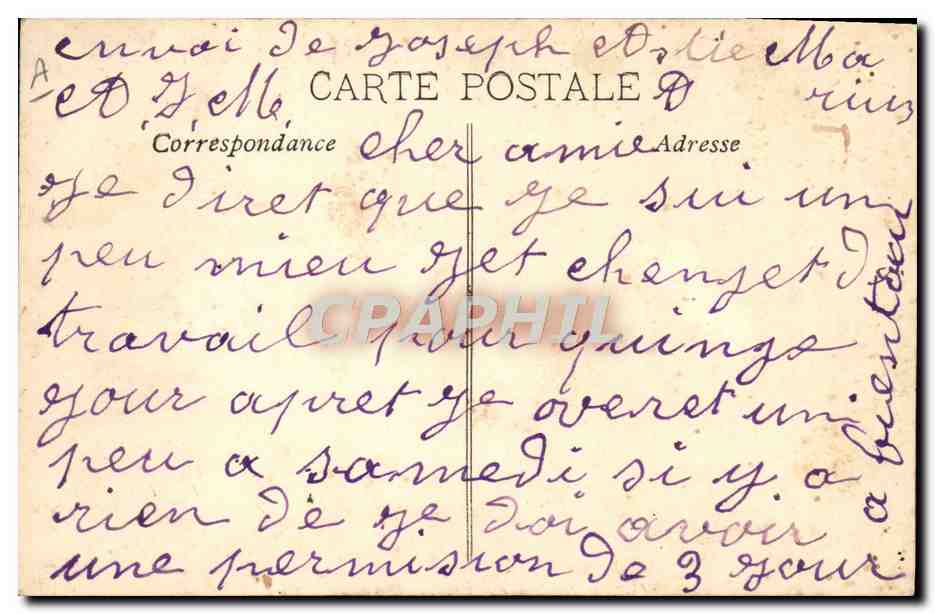 envoi de Joseph Astie Ma
A
A J. M. CARTE POSTALE A rius
Correspondance cher amie Adresse
Je diret que je sui un
peu mieu jet chenjet d
travail pour quinze
jour apret je overet un
peu a samedi si y a
rien de je doi avoir
une permision de 3 jour
a bientour
CPAPHIL